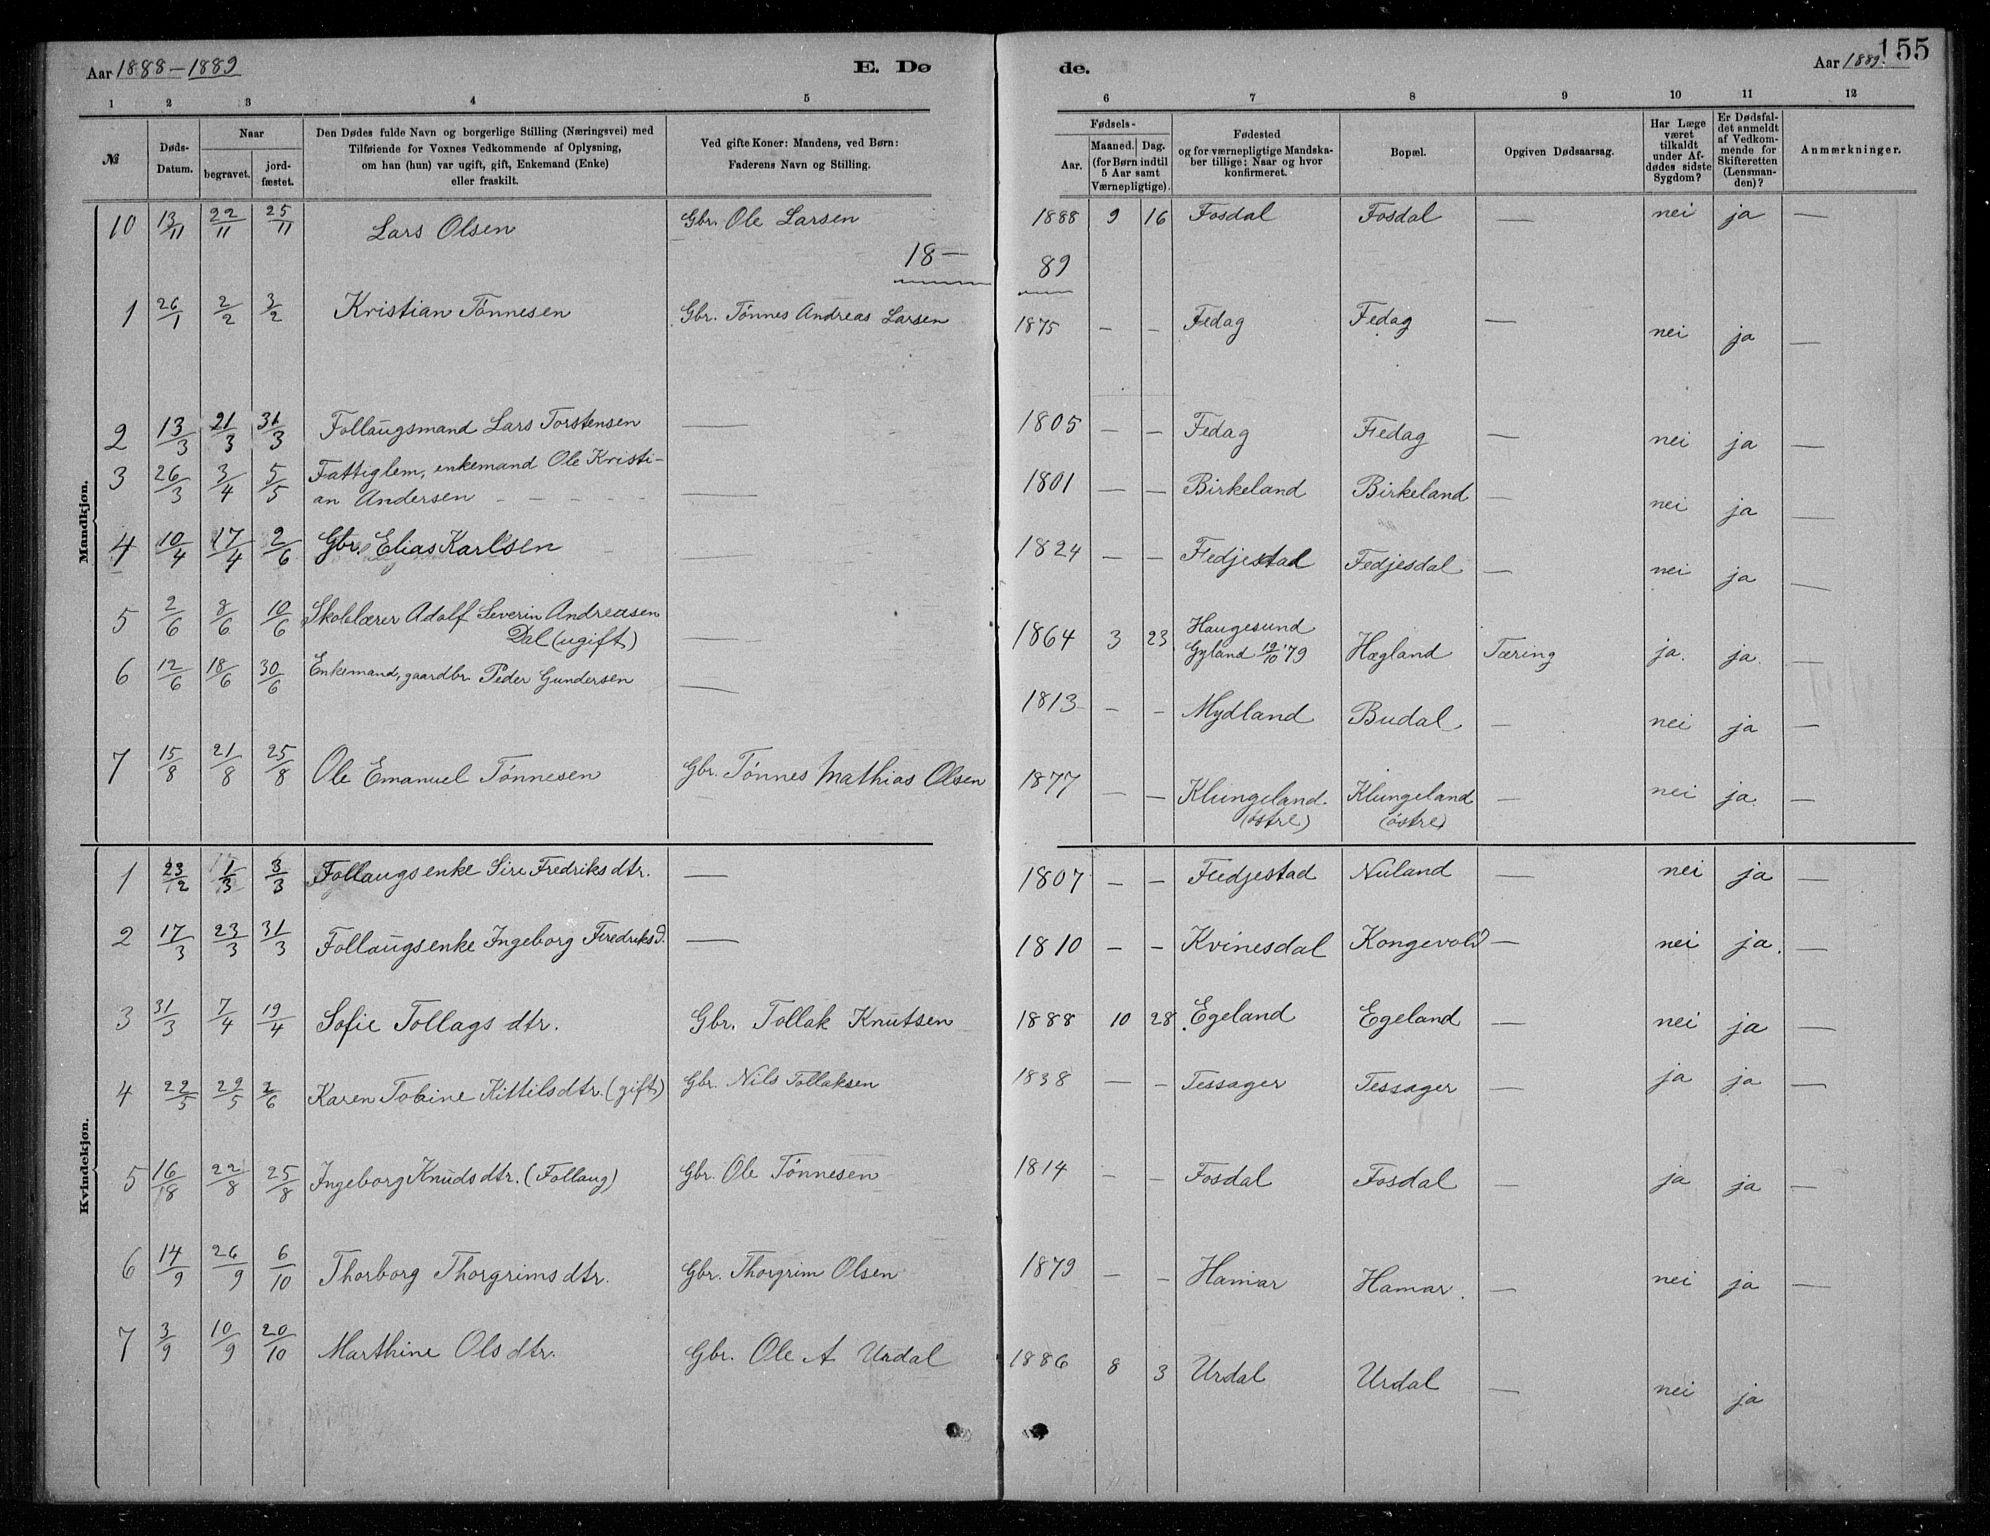 Aar 1888-1889 E. Dø
de. Aar 1889. 155
1 2 3 4 5 6 7 8 9 10 11 12
№
Døds-Datum.
Naar
begravet.
jord-fæstet.
Den Dødes fulde Navn og borgerlige Stilling (Næringsvei) med
Tilføiende for Voxnes Vedkommende af Oplysning,
om han (hun) var ugift, gift, Enkemand (Enke)
eller fraskilt.
Ved gifte Koner: Mandens, ved Børn:
Faderens Navn og Stilling.
Fødsels-
Aar.
Maaned. Dag.
(for Børn indtil
5 Aar samt
Værnepligtige).
Fødested
og for værnepligtige Mandska-
ber tillige: Naar og hvor
konfirmeret.
Bopæl.
Opgiven Dødsaarsag.
Har Læge
været
tilkaldt
under Af-
dødes sidste
Sygdom?
Er Dødsfal-
det anmeldt
af Vedkom-
mende for
Skifteretten
(Lensman-
den)?
Anmærkninger.
Mandkjøn.
10 13/11 22/11 25/11 Lars Olsen Gbr. Ole Larsen 1888 9 16 Fosdal Fosdal — nei ja —
18— 89
1 26/1 2/2 3/2 Kristian Tønnesen Gbr. Tønnes Andreas Larsen 1875 — — Fedag Fedag — nei ja —
2 13/3 21/3 31/3 Follaugsmand Lars Torstensen — 1805 — — Fedag Fedag — nei ja —
3 26/3 3/4 5/5 Fattiglem, enkemand Ole Kristi-
an Andersen — 1801 — — Birkeland Birkeland — nei ja —
4 10/4 17/4 2/6 Gbr. Elias Karlsen 1824 — — Fedjestad Fedjesdal — nei ja —
5 2/6 8/6 10/6 Skolelærer Adolf Severin Andreasen
Dal (ugift) — 1864 3 23 Haugesund
Gyland 19/10 '79 Hægland Tæring ja. ja.
6 12/6 18/6 30/6 Enkemand, gaardbr. Peder Gundersen — 1813 — — Mydland Budal — nei ja —
7 15/8 21/8 25/8 Ole Emanuel Tønnesen Gbr. Tønnes Mathias Olsen 1877 — — Klungeland Klungeland — nei ja. —
(østre) (østre)
Kvindekjøn.
1 23/2 1/3 3/3 Follaugsenke Siri Fredriksdtr. — 1807 — — Fedjestad Nuland — nei ja —
2 17/3 23/3 31/3 Follaugsenke Ingeborg Fredriksd. — 1810 — — Kvinesdal Kongevold — nei ja. —
3 31/3 7/4 19/4 Sofie Tollags dtr. Gbr. Tollak Knutsen 1888 10 28 Egeland Egeland — nei ja —
4 22/5 29/5 2/6 Karen Tobine Kittilsdtr. (gift) Gbr. Nils Tollaksen 1838 — — Tessager Tessager — ja ja —
5 16/8 22/8 25/8 Ingeborg Knudsdtr. (Follaug) Gbr. Ole Tønnesen 1814 — — Fosdal Fosdal — ja ja —
6 14/9 26/9 6/10 Thorborg Thorgrimsdtr. Gbr. Thorgrim Olsen 1879 — — Hamar Hamar. — nei ja —
7 3/9 10/9 20/10 Marthine Olsdtr. Gbr. Ole A Urdal 1886 8 3 Urdal Urdal — nei ja